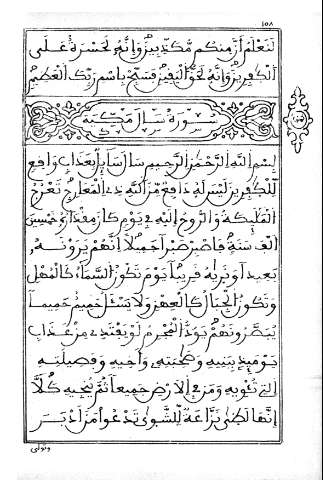 ١٥٨
لَنَعْلَمُ أَنَّ مِنكُم مُّكَذِّبِينَ وَإِنَّهُ لَحَسْرَةٌ عَلَى
الْكَٰفِرِينَ وَإِنَّهُ لَحَقُّ الْيَقِينِ فَسَبِّحْ بِاسْمِ رَبِّكَ الْعَظِيمِ
سورة سال مكية
بِسْمِ اللَّهِ الرَّحْمَٰنِ الرَّحِيمِ سَالَ سَآئِلٌ بِعَذَابٍ وَاقِعٍ
لِّلْكَٰفِرِينَ لَيْسَ لَهُ دَافِعٌ مِّنَ اللَّهِ ذِي الْمَعَارِجِ تَعْرُجُ
الْمَلَٰٓئِكَةُ وَالرُّوحُ إِلَيْهِ فِي يَوْمٍ كَانَ مِقْدَارُهُ خَمْسِينَ
أَلْفَ سَنَةٍ فَاصْبِرْ صَبْرًا جَمِيلًا إِنَّهُمْ يَرَوْنَهُ
بَعِيدًا وَنَرَىٰهُ قَرِيبًا يَوْمَ تَكُونُ السَّمَآءُ كَالْمُهْلِ
وَتَكُونُ الْجِبَالُ كَالْعِهْنِ وَلَا يَسْـَٔلُ حَمِيمٌ حَمِيمًا
يُبَصَّرُونَهُمْ يَوَدُّ الْمُجْرِمُ لَوْ يَفْتَدِي مِنْ عَذَابِ
يَوْمَئِذٍ بِبَنِيهِ وَصَٰحِبَتِهِ وَأَخِيهِ وَفَصِيلَتِهِ
الَّتِي تُـْٔوِيهِ وَمَن فِي الْأَرْضِ جَمِيعًا ثُمَّ يُنجِيهِ كَلَّآ
إِنَّهَا لَظَىٰ نَزَّاعَةٌ لِّلشَّوَىٰ تَدْعُوا مَنْ أَدْبَرَ
وتولى